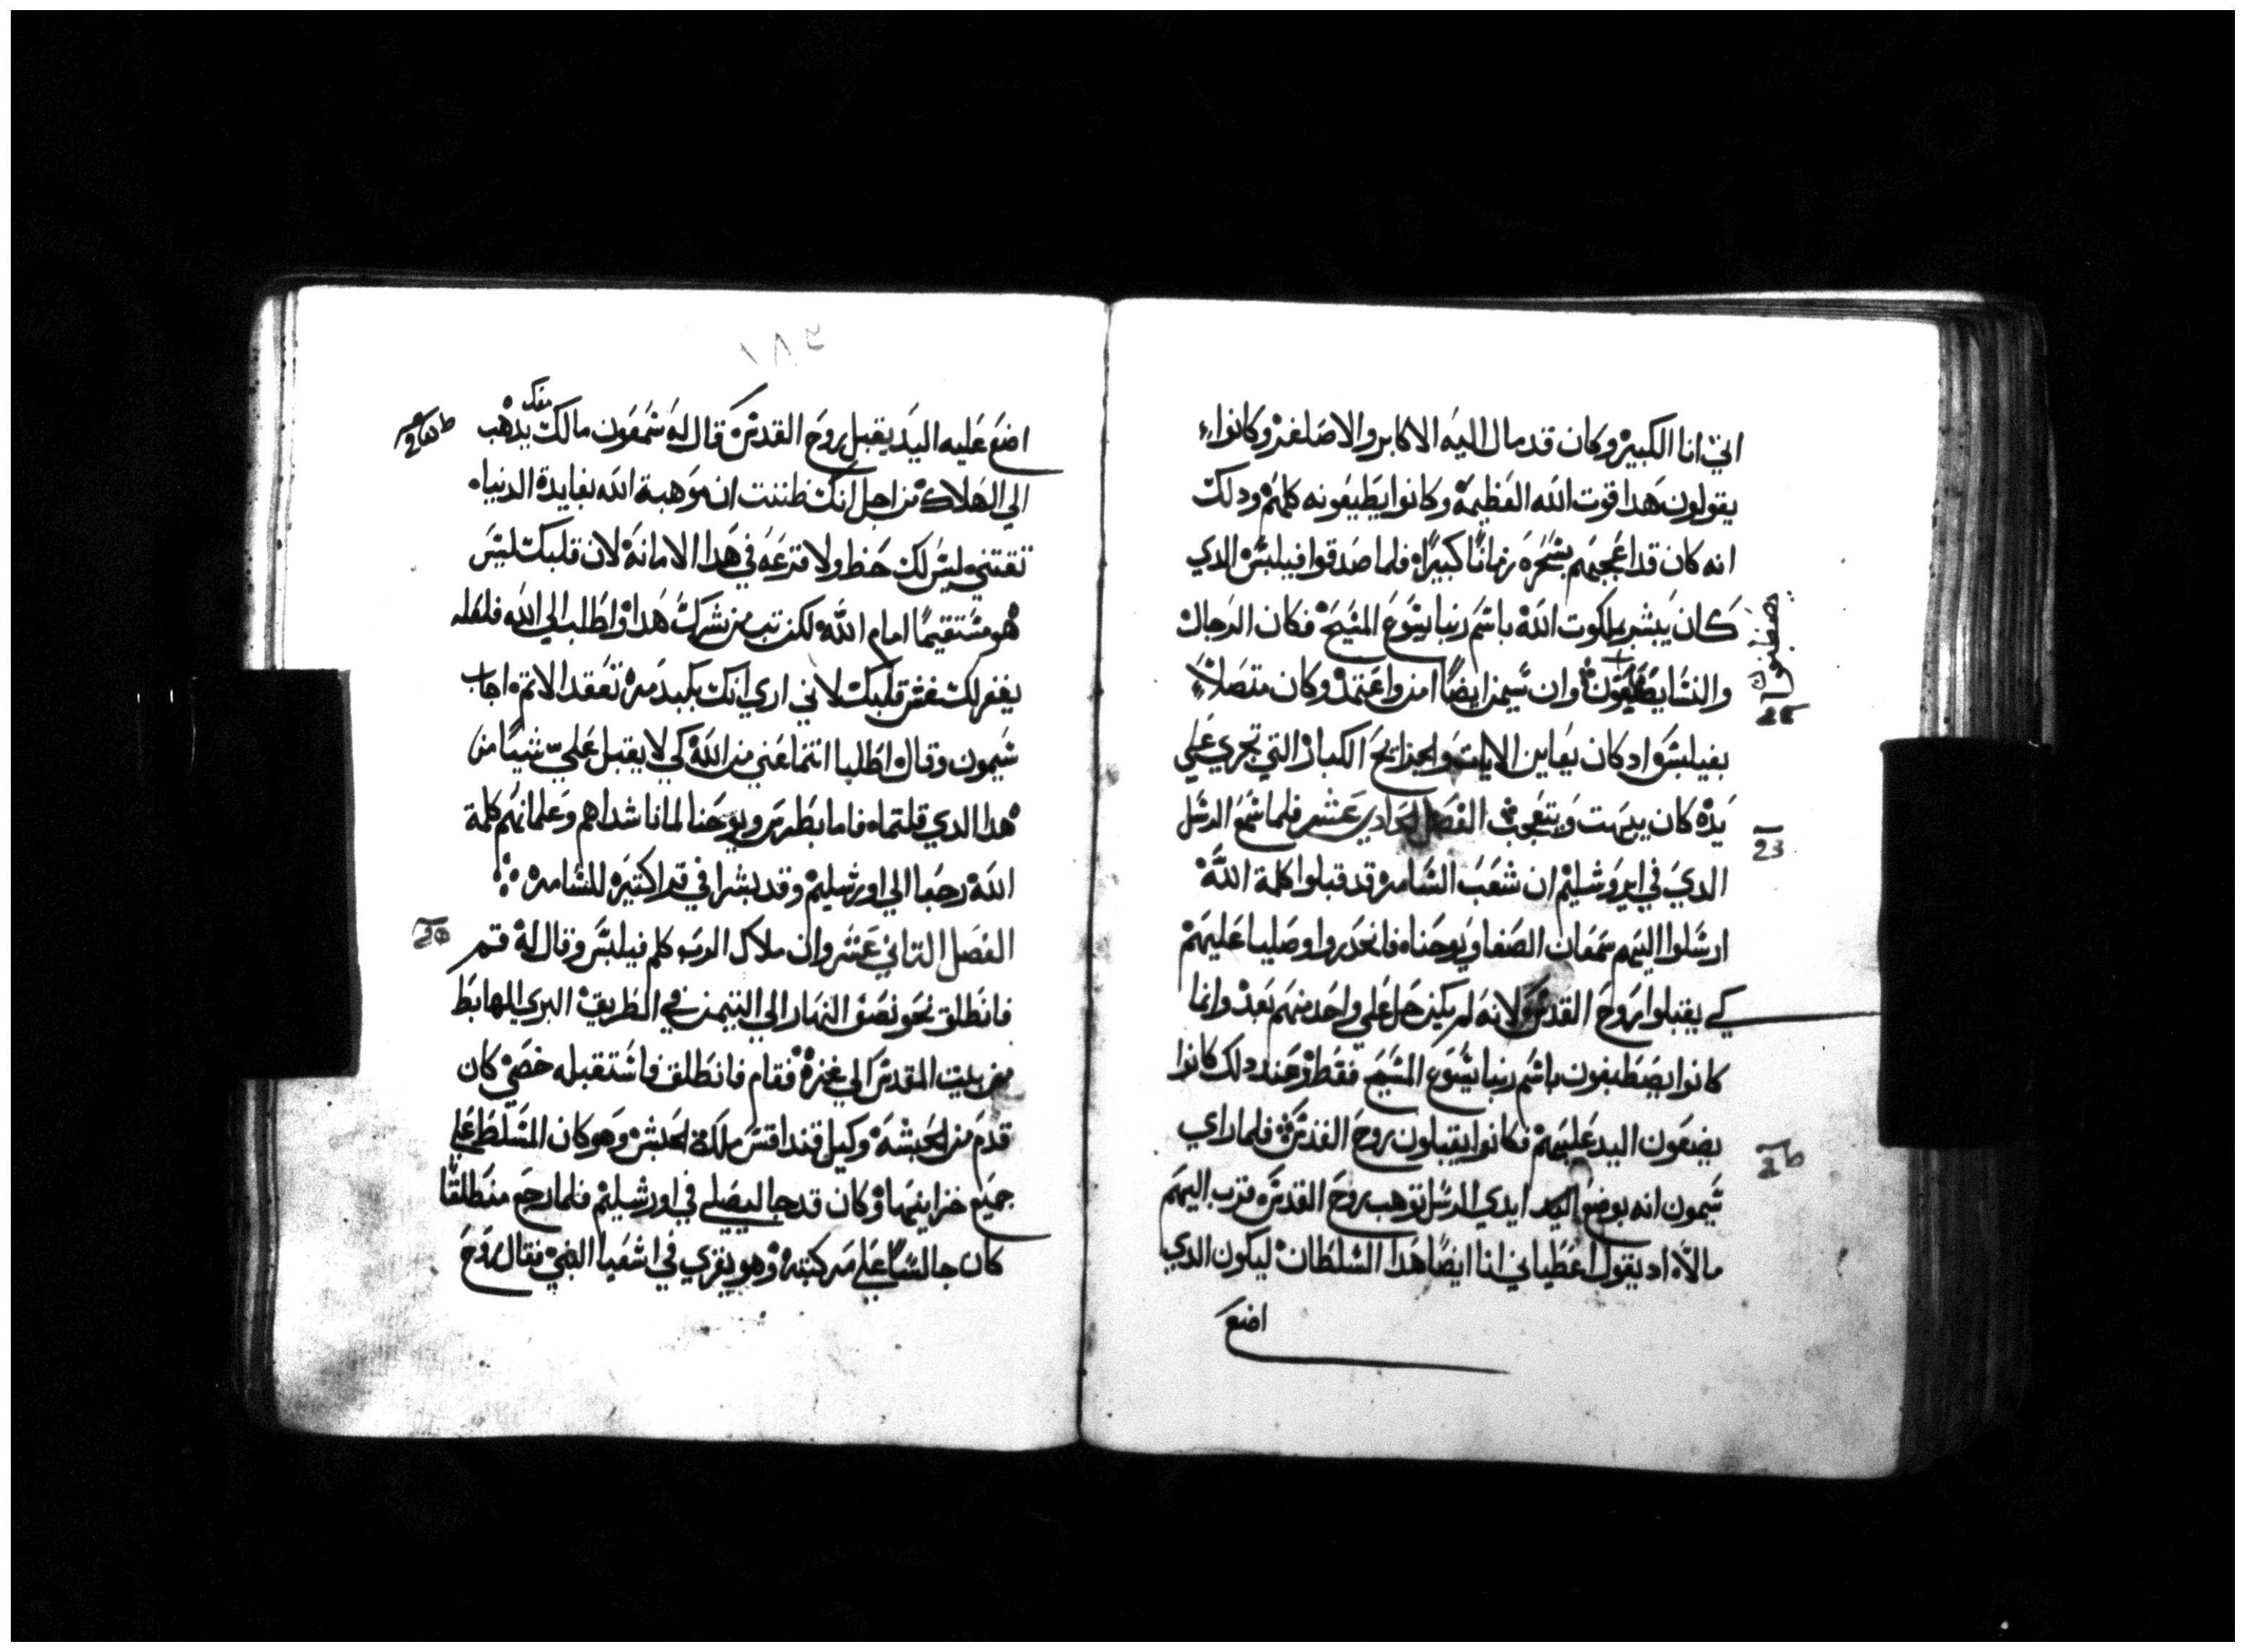 اني انا الكبير وكان قد مال اليه الاكابر والاصاغر وكانوا
يقولون هدا قوت الله العظيمة وكانوا يطيعونه كلهم ودلك
انه كان قد اعجبهم بسحره زمانًا كبيرًا فلما صدقوا فيلبس الدي
كان يبشر بملكوت الله باسم ربنا يسوع المسيح فكان الرجال
والنسا يصطبغون وان سيمن ايضًا امن واعتمد وكان متصلاً
بفيلبس واد كان يعاين الايات والجرايح الكبار التي تجري علي
يده كان يبهت ويتعجب الفصل الحادي عشر فلما سمع الرسل
الدي في ايروشليم ان شعب السامرة قد قبلوا كلمة الله
ارسلوا اليهم سمعان الصفا ويوحنا فانحدروا وصليا عليهم
كي يقبلوا روح القدس لانه لم يكن حل علي واحد منهم بعد وانما
كانوا يصطبغون باسم ربنا يسوع المسيح فقط وعند دلك كانوا
يضعون اليد عليهم فكانوا يقبلون روح القدس فلما راي
سيمون انه بوضع ايدي الرسل توهب روح القدس قرب اليهم
مالاً اد يقول اعطياني انا ايضًا هدا السلطان ليكون الدي
اضع
يصطبغون
١٨٢
اضع عليه اليد يقبل روح القدس قال له شمعون مالك معك يدهب
الي الهلاك من اجل انك ظننت ان موهبة الله بفايدة الدنيا
تقتني ليس لك حظ ولا قرعه في هدا الامانة لان قلبك ليس
هو مستقيمًا امام الله لكن تب من شرك هدا واطلب الي الله فلعله
يغفر لك غش قلبك لاني اري انك بكبد مرة تعقد الاتم اجاب
سيمون وقال اطلبا انتما عني من الله كي لا يقبل علي شيًا من
هدا الدي قلتماه فاما بطرس ويوحنا لما ناشداهم وعلمانهم كلمة
الله رجعا الي اورشليم وقد بشرا في قرا كتيرة للسامرة
الفصل التاني عشر وان ملاك الرب كلم فيلبس وقال له قم
فانطلق نحو نصف النهار الي التيمن في الطريق البري الهابط
من بيت المقدس الي غزة فقام فانطلق فاستقبله خصي كان
قدم من الحبشة وكيل قنداقس ملكة الحبش وهو كان المسلط علي
جميع خزاينها وكان قد جا ليصلي في اورشليم فلما رجع منطلقًا
كان جالسًا علي مركبته وهو يقري في اشعيا النبي فقال روح